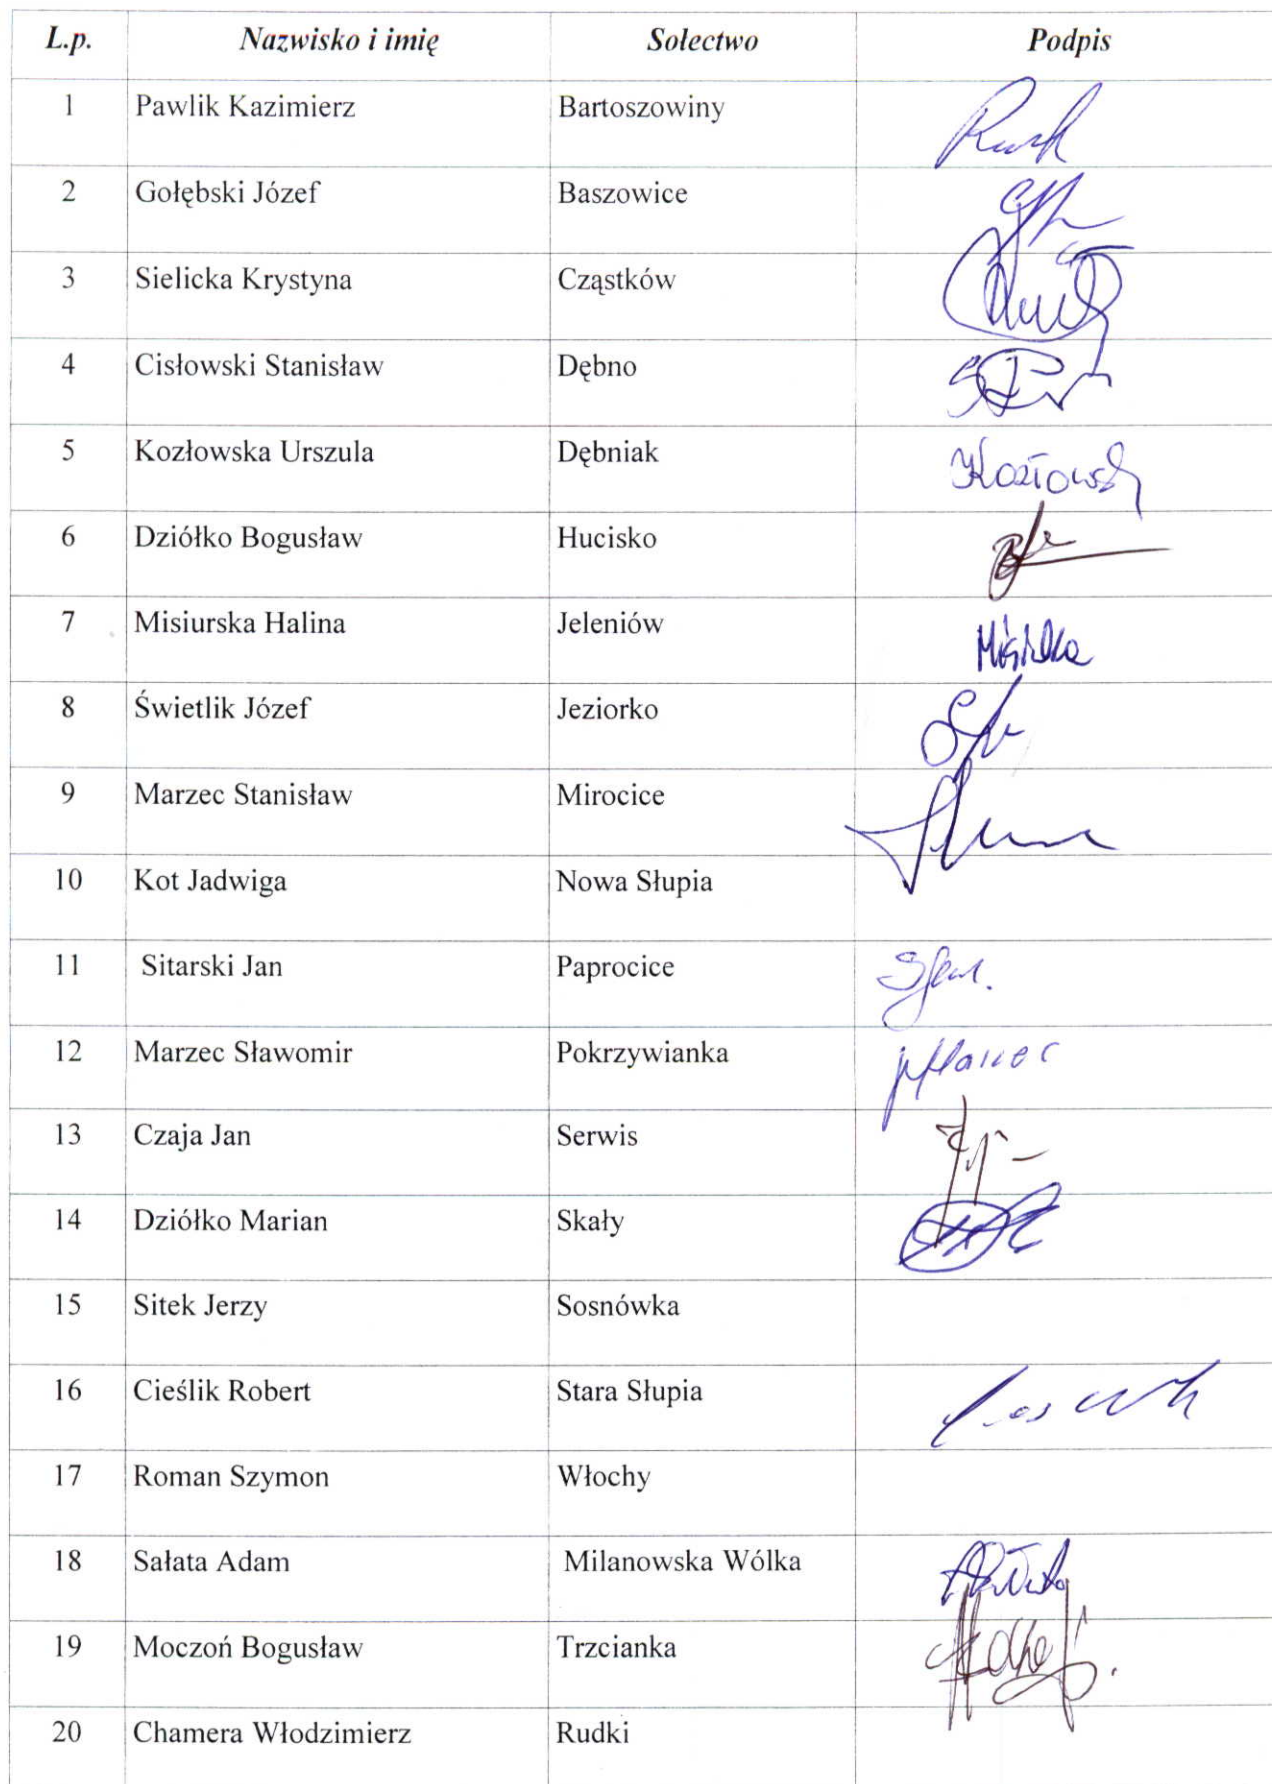 L.p. Nazwisko i imię Sołectwo Podpis
1 Pawlik Kazimierz Bartoszowiny
2 Gołębski Józef Baszowice
3 Sielicka Krystyna Cząstków
4 Cisłowski Stanisław Dębno
5 Kozłowska Urszula Dębniak
6 Dziółko Bogusław Hucisko
7 Misiurska Halina Jeleniów
8 Świetlik Józef Jeziorko
9 Marzec Stanisław Mirocice
10 Kot Jadwiga Nowa Słupia
11 Sitarski Jan Paprocice
12 Marzec Sławomir Pokrzywianka
13 Czaja Jan Serwis
14 Dziółko Marian Skały
15 Sitek Jerzy Sosnówka
16 Cieślik Robert Stara Słupia
17 Roman Szymon Włochy
18 Sałata Adam Milanowska Wólka
19 Moczoń Bogusław Trzcianka
20 Chamera Włodzimierz Rudki